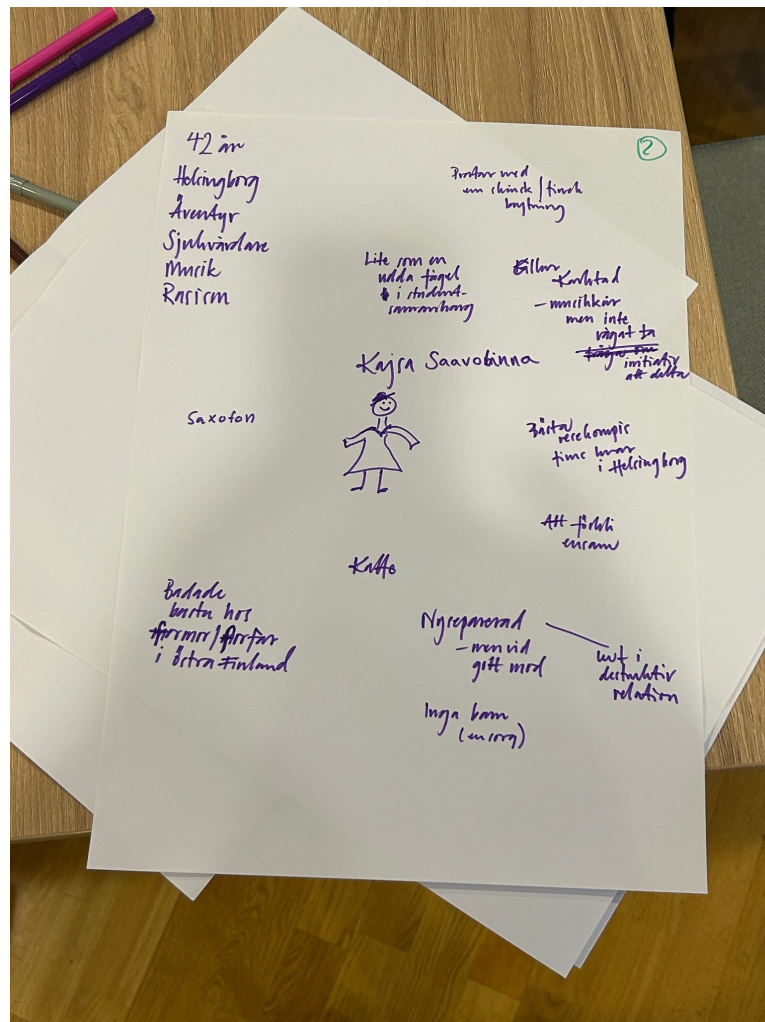 42 år
Helsingborg
Äventyr
Sjukvårdare
Musik
Rasism
2
Pratar med
en skånsk / finsk
brytning
Lite som en
udda fågel
i student-
sammanhang
Gillar
Karlstad
- musikkår
men inte
vågat ta
initiativ
att delta
Kajsa Saavolinna
Saxofon
Bästa
resekompis
finns kvar
i Helsingborg
Att förbli
ensam
Kaffe
Badade
bastu hos
farmor / farfar
i östra Finland
Nyseparerad
- men vid
gott mod
levt i
destruktiv
relation
Inga barn
(en sorg)